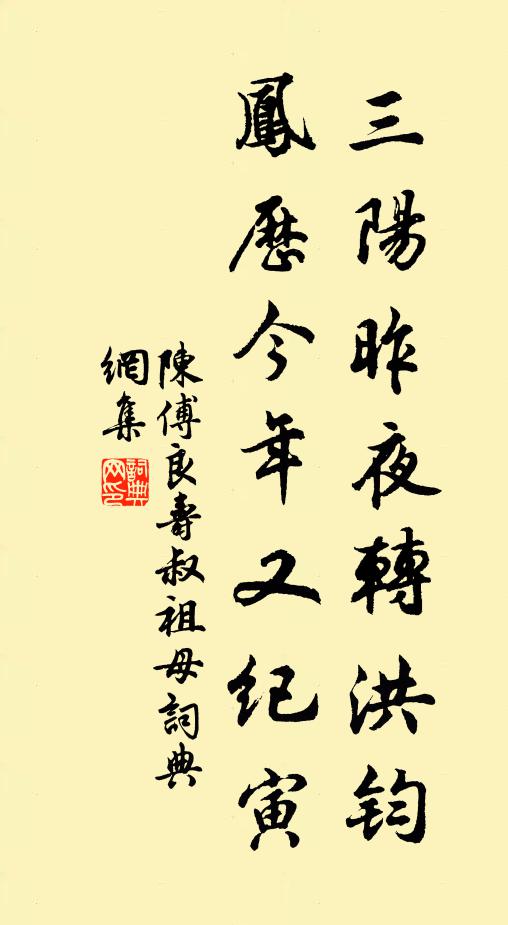 三陽昨夜轉洪鈞
鳳歷今年又纪寅
陳傅良壽叔祖母詞典
網集
詞典
网印